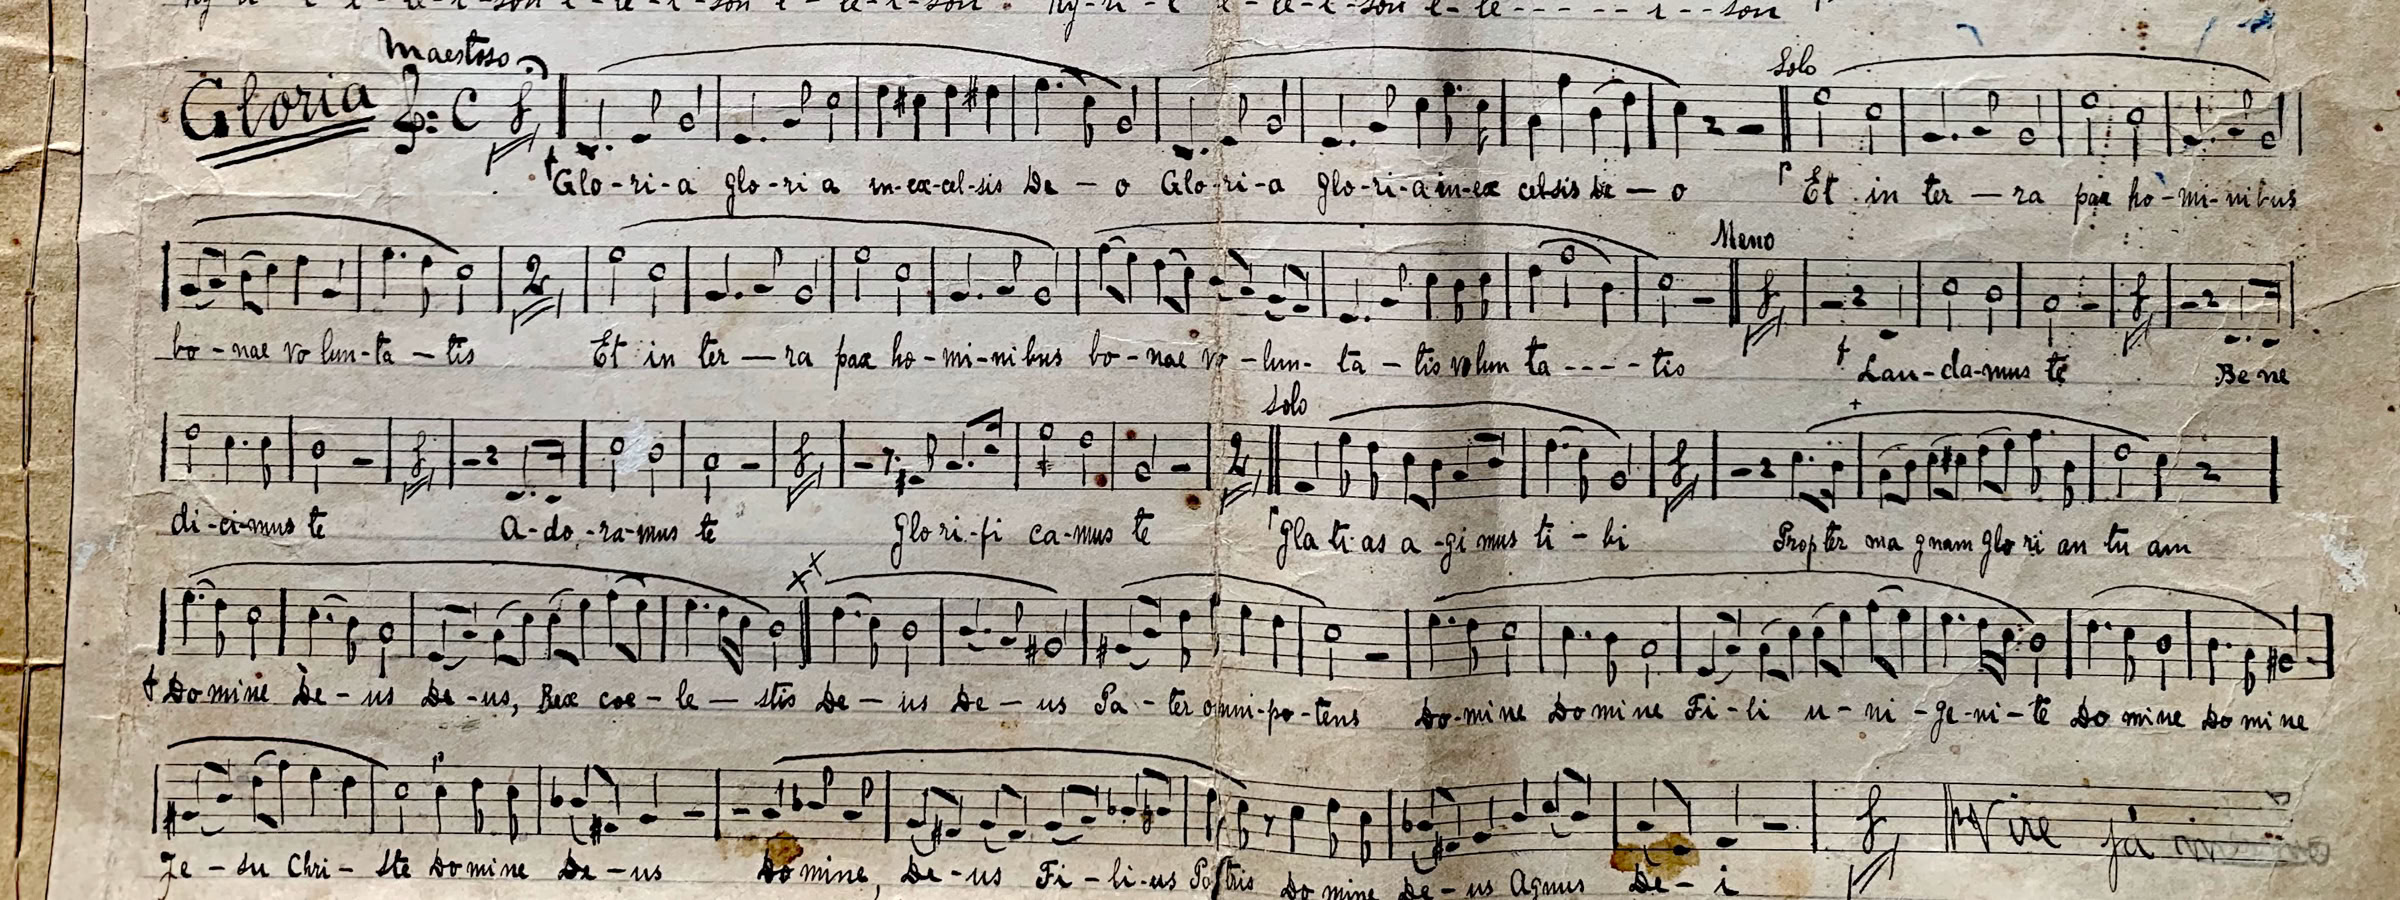 Ky-ri-e e-le-i-son e-le-i-son e-le-i-son. Ky-ri-e e-le-i-son e-le---- - i--son
Maestoso
Solo
Gloria C
Glo-ri-a glo-ri a in-ex-cel-sis De - o Glo-ri-a glo-ri-a in-ex celsis De - o Et in ter - ra pax ho-mi-nibus
Meno
2
bo-nae vo lun-ta-tis Et in ter - ra pax ho-mi-nibus bo-nae vo-lun- ta-tis volun ta - - - - tis Lau-da-mus te Be ne
Solo
2
di-ci-mus te A-do-ra-mus te Glo ri-fi ca-mus te Gra ti as a-gi mus ti-bi Propter ma gnam glo ri an tu am
Do mine De-us De-us, Rex coe-le-stis De-us De-us Pa-ter omni-po-tens Do-mine Do mine Fi-li u-ni-ge-ni-te Do mine Do mi ne
Vire já
Je-su Chri-ste Do mine De-us Do mine, De-us Fi-li-us Patris Do mine De-us Agnus De-i